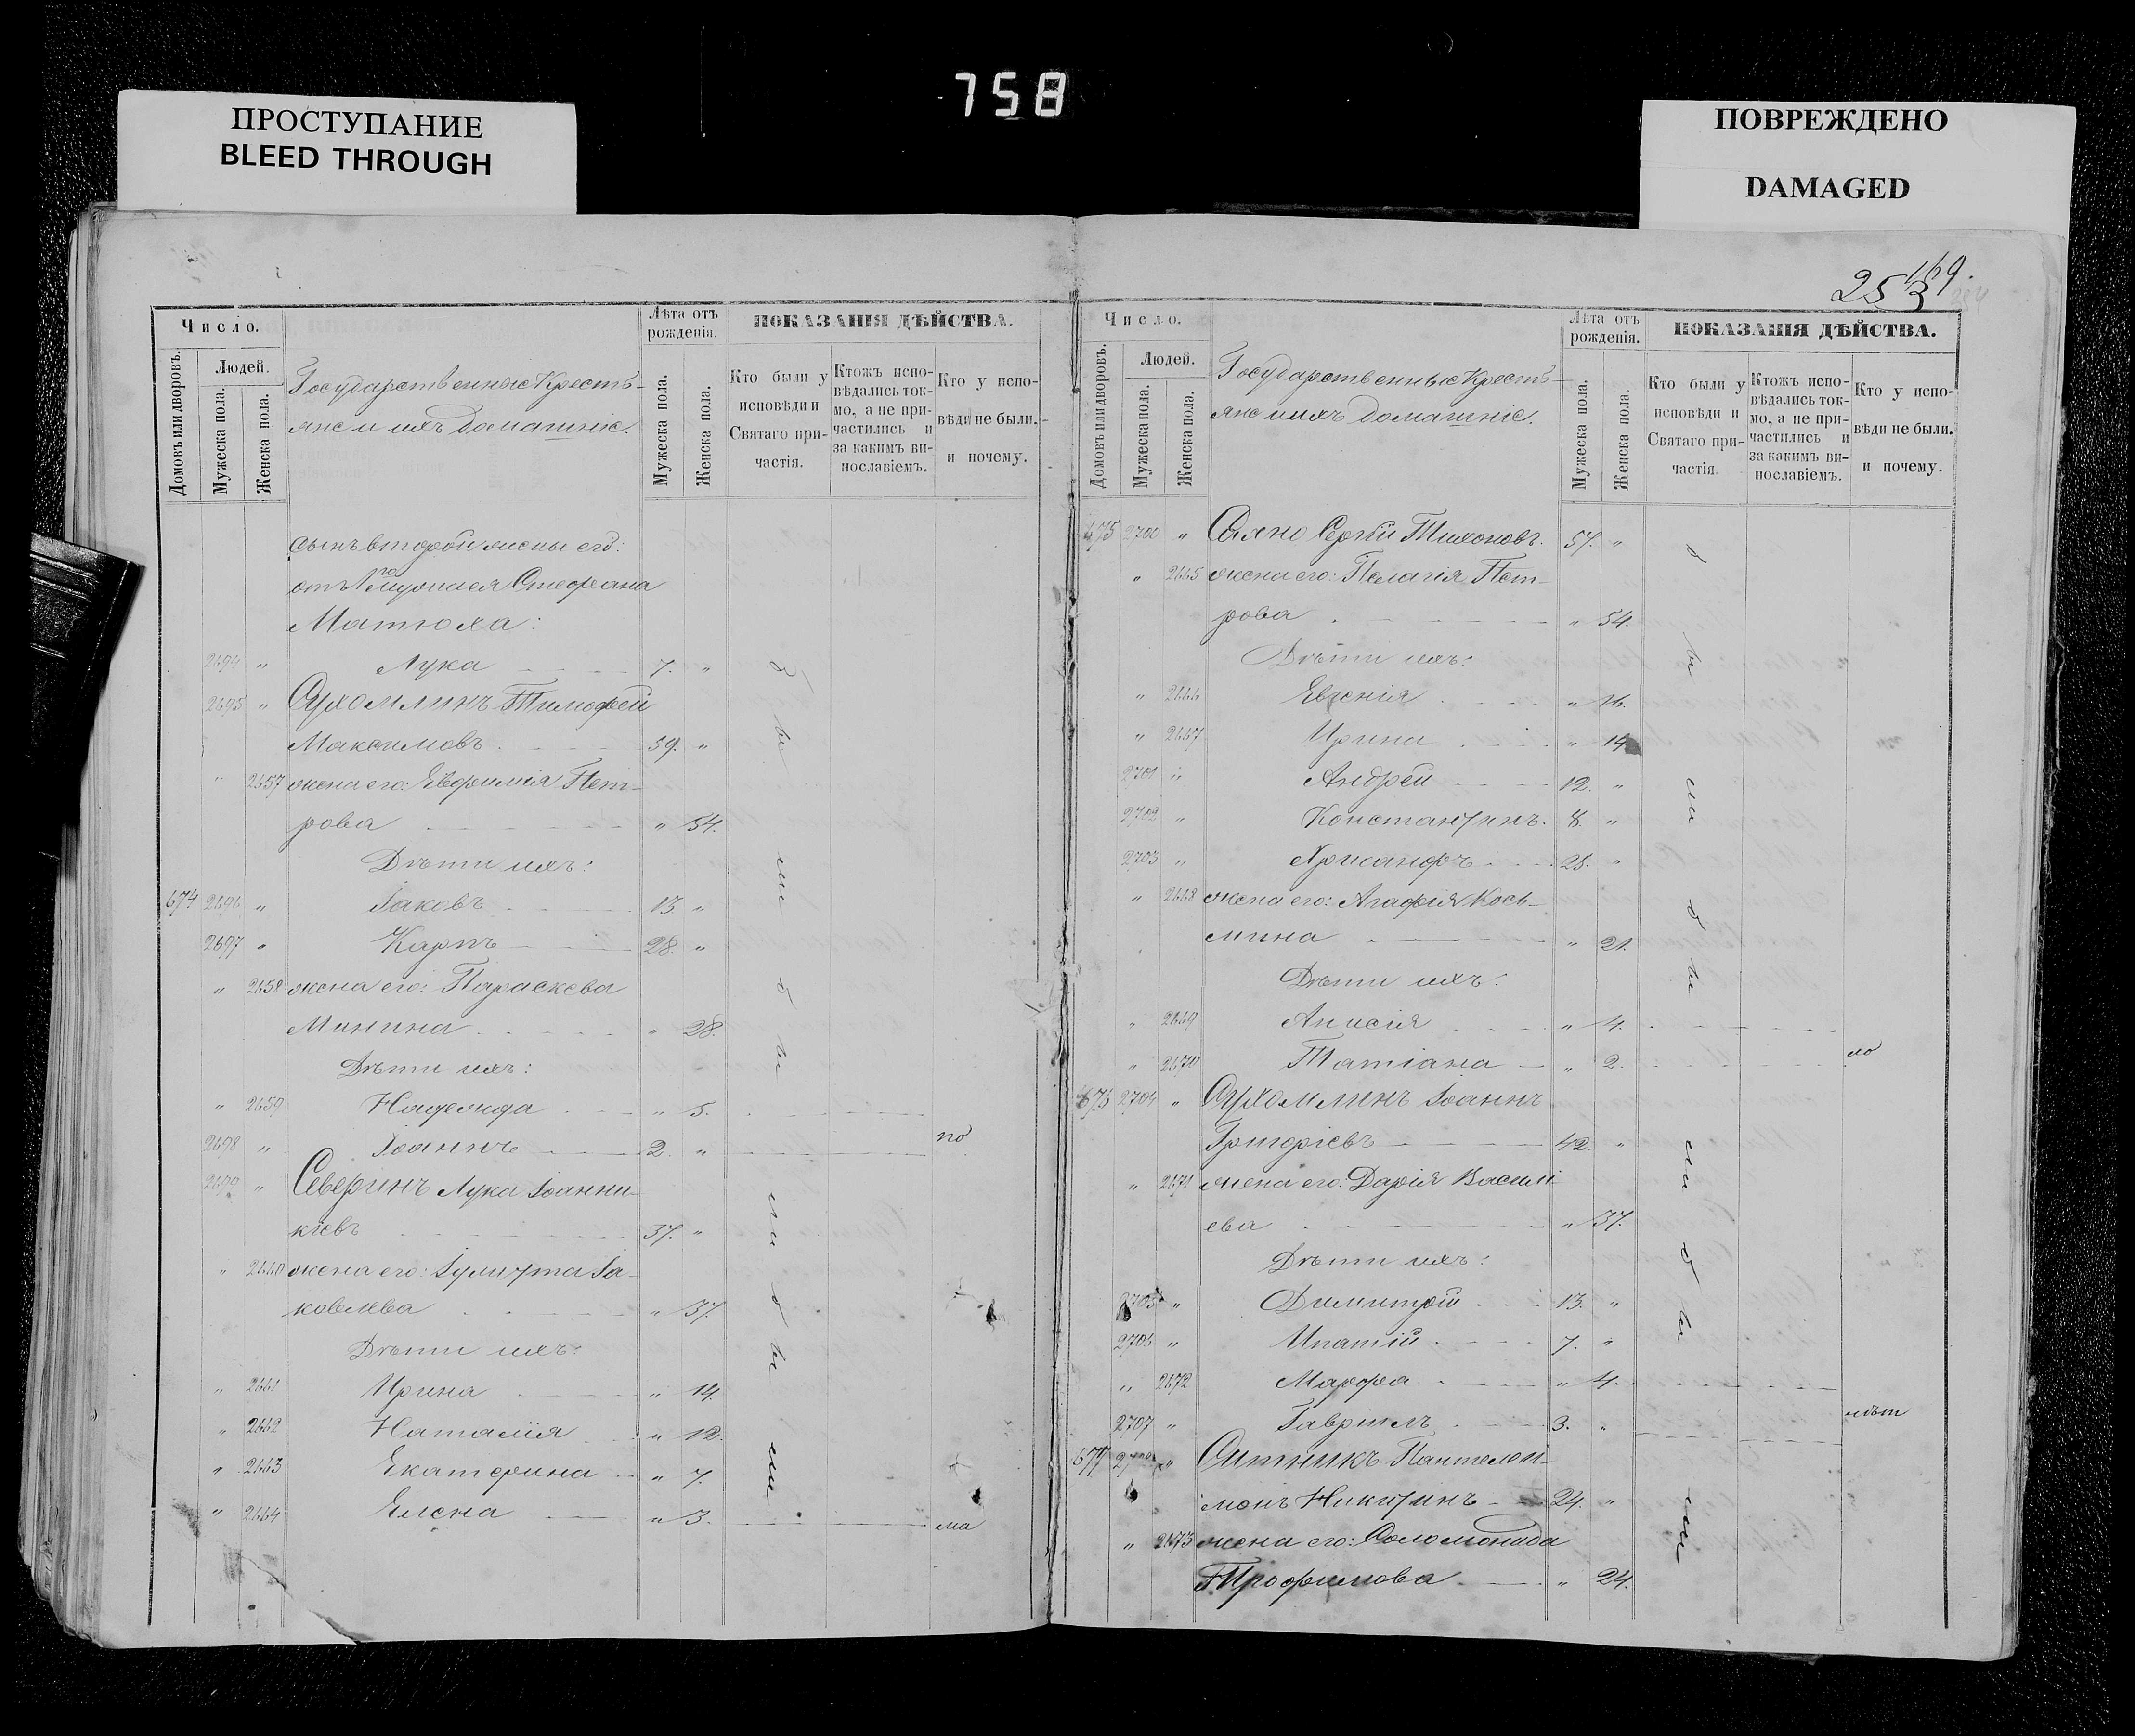 758
ПРОСТУПАНИЕ
BLEED THROUGH
ПОВРЕЖДЕНО
DAMAGED
Число.
Домовъ или дворовъ.
Людей.
Мужеска пола.
Женска пола.
Государственные Кресть-
яне и ихъ домашніе.
Лѣта отъ рожденія.
Мужеска пола.
Женска пола.
ПОКАЗАНІЯ ДѢЙСТВА.
Кто были у исповѣди и Святаго при-частія.
Ктожъ испо-вѣдались ток-мо, а не при-частились и за какимъ ви-нославіемъ.
Кто у испо-вѣди не были. и почему.
сынъ второй жены его:
отъ 1го мужа ея Стефана
Матюха:
2694 " Лука 7. "
2695 " Сухомлинъ Тимофей
Максимовъ 59. "
" 2657 жена его: Евфимія Пет-
рова " 54.
Дѣти ихъ:
674 2696 " Іаковъ 13 "
2697 " Карпъ 28. "
" 2658 жена его: Параскева
Минина " 28.
Дѣти ихъ:
" 2659 Надежда " 5.
2698 " Іоаннъ 2. " по
2699 " Северинъ Лука Іоанни-
кіевъ 37. "
" 2660 жена его: Іулитта Іа-
ковлева " 37.
Дѣти ихъ:
" 2661 Ирина " 14.
" 2662 Наталія " 12.
" 2663 Екатерина " 7.
" 2664 Елена " 3. ма
были были
169.
253
Число.
Домовъ или дворовъ.
Людей.
Мужеска пола.
Женска пола.
Государственные Кресть-
яне и ихъ домашніе.
Лѣта отъ рожденія.
Мужеска пола.
Женска пола.
ПОКАЗАНІЯ ДѢЙСТВА.
Кто были у исповѣди и Святаго при-частія.
Ктожъ испо-вѣдались ток-мо, а не при-частились и за какимъ ви-нославіемъ.
Кто у испо-вѣди не были. и почему.
675 2700 " Сергій Тихоновъ. 57. "
" 2665 жена его: Пелагія Пет-
рова " 54.
Дѣти ихъ:
" 2666 Евгенія " 16.
" 2667 Ирина " 14
2701 " Андрей 12. "
2702 " Константинъ. 8. "
2703 " Хрисанфъ 25. "
" 2668 жена его: Агафія Козь-
мина " 21.
Дѣти ихъ:
" 2669 Анисія " 4.
" 2670 Татіана " 2. ло
676 2704 " Сухомлинъ Іоаннъ
Григоріевъ 42. "
" 2671 жена его: Дарія Василі-
ева " 37.
Дѣти ихъ:
2705 " Димитрій 13. "
2706 " Ипатій 7. "
" 2672 Марфа " 4.
2707 " Гавріилъ 3. " лѣт
677 " Ситникъ Пантелеи-
монъ Никитинъ 24. "
" 2673 жена его: Соломонида
Трофимова " 24.
были были